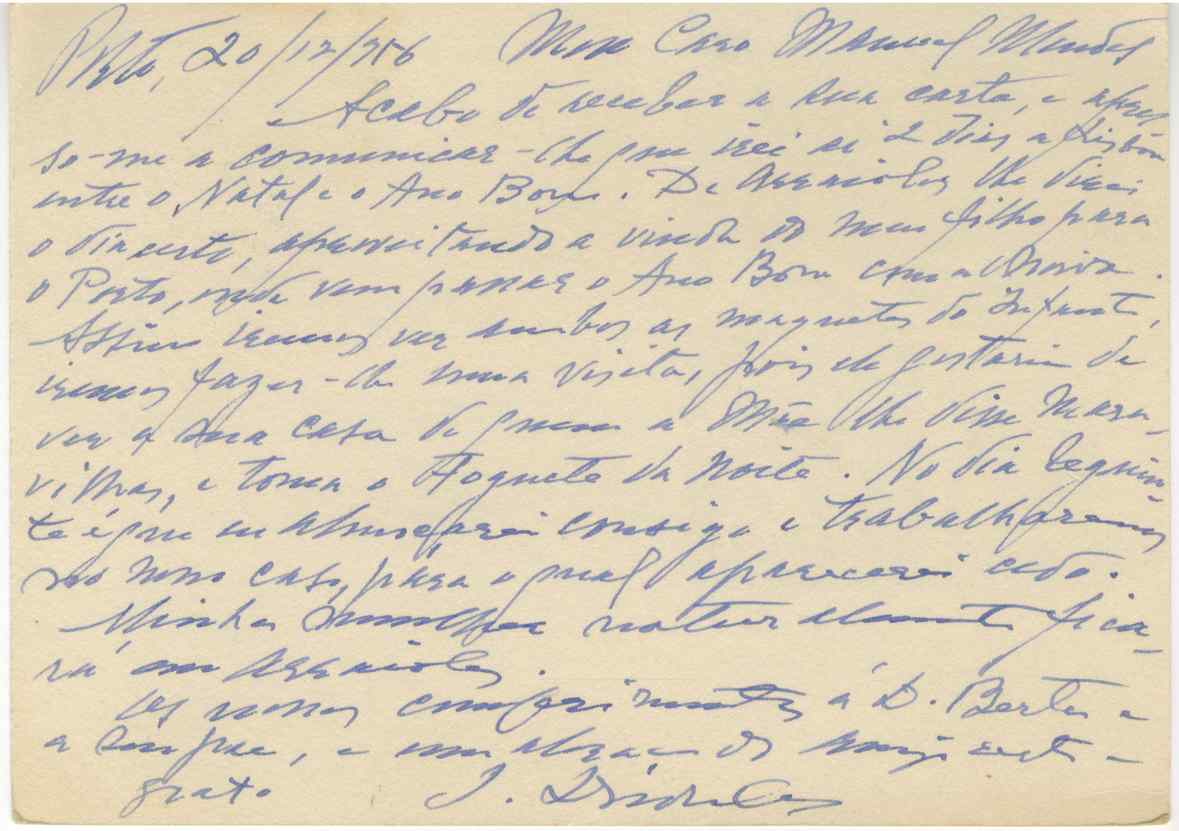 Porto, 20/12/956 Meu Caro Manuel Mendes
Acabo de receber a sua carta, e apres-
so-me a comunicar-lhe que irei aí 2 dias a Lisboa
entre o Natal e o Ano Bom. De Arraiolos lhe direi
o dia certo, aproveitando a vinda do meu filho para
o Porto, onde vem passar o Ano Bom com a noiva.
Assim iremos ver ambos as maquetes do Infante,
iremos fazer-lhe uma visita, pois ele gostaria de
ver a sua casa de quem a Mãe lhe disse mara-
vilhas, e toma o Foguete da noite. No dia seguin-
te é que eu almoçarei consigo e trabalharemos
no nosso caso, para o qual aparecerei cedo.
Minha mulher naturalmente fica-
rá em Arraiolos.
Os nossos cumprimentos à D. Berta e
e um abraço do amigo certo e
grato J.